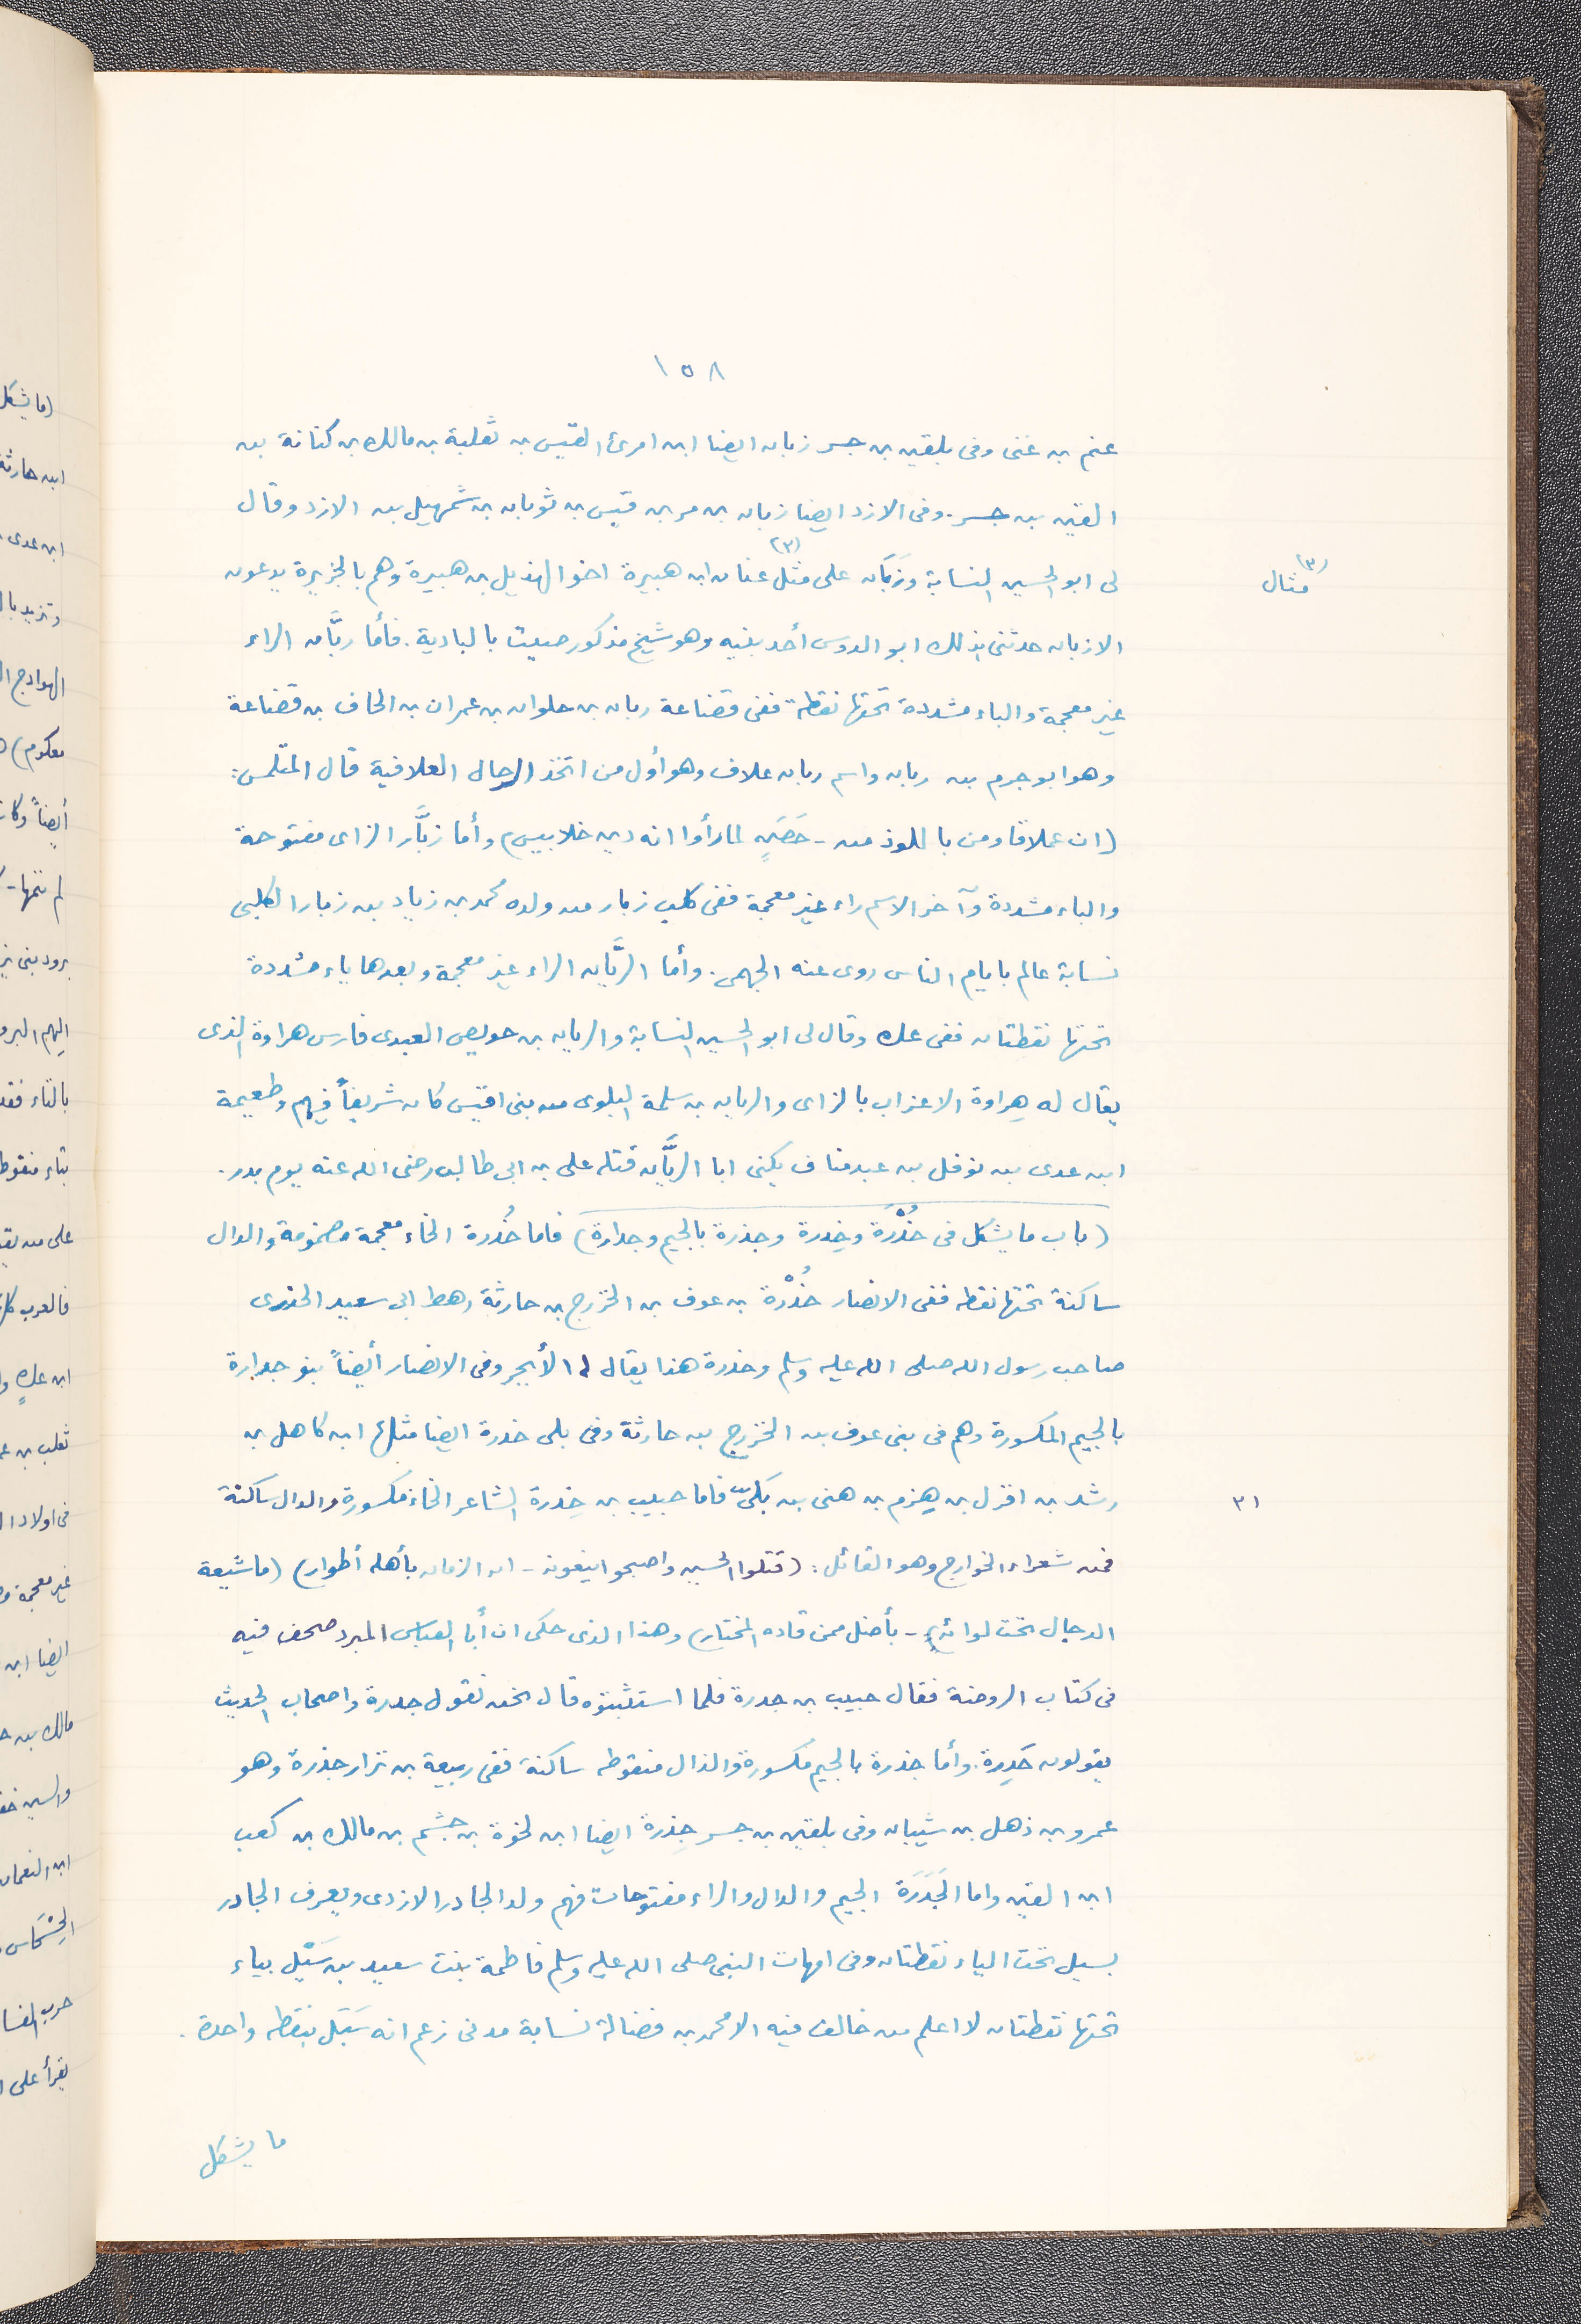 ١٥٨
غنم بن غنى وفى بلقين بن جسر زبان ايضا ابن امرئ القيس بن ثعلبة بن مالك بن كنانة بن
القين بن جسر. وفى الازد ايضا زبان بن مر بن قيس بن ثوبان بن شهميل بن الازد وقال
لى ابو الحسين النسابة وزَبَان على مثل (٣) عنان ابن هبيرة اخو الهذيل بن هبيرة وهم بالجزيرة يدعون
(٣) مثال
الازبان حدثنى بذلك ابو الدوس أحد بنيه وهو شيخ مذكور صيت بالبادية. فأما ربَّان الراء
غير معجمة والباء مشددة تحتها نقطة ففى قضاعة ربان بن حلوان بن عمران بن الحاف بن قضاعة
وهو ابو جرم بن ربان واسم ربان علاف وهو أول من اتخذ الرحال العلافية قال المتلمس:
(ان عملاقا ومن باللوذ من - حَضَنٍ لما رأوا انه دين خلابيس) وأما زبَّار الزاى مفتوحة
والباء مشددة وآخر الاسم راء غير معجمة ففى كلب زبار من ولده محمد بن زياد بن زبار الكلبى
نسابة عالم بايام الناس روى عنه الجهمى. وأما الريَّان الراء غير معجمة وبعدها ياء مشددة
تحتها نقطتان ففى عك وقال لى ابو الحسين النسابة والريان بن حويص العبدى فارس هراوة الذى
يقال له هِراوة الاعزاب بالزاى والريان بن سلمة البلوى من بنى اقيس كان شريفاً فيهم وطعيمة
ابن عدى بن نوفل بن عبد مناف يكنى ابا الريَّان قتله على بن ابى طالب رضى الله عنه يوم بدر.
(باب ما يشكل فى خُدْرَة وخِدرة وجذرة بالجيم وجدارة) فاما خُدرة الخاء معجمة مضمومة والدال
ساكنة تحتها نقطه ففى الانصار خُدْرة بن عوف بن الخزرج بن حارثة رهط ابى سعيد الخدرى
صاحب رسول الله صلى الله عليه وسلم وخدرة هذا يقال له الأبجر وفى الانصار أيضاً بنو جدارة
بالجيم المكسورة وهم فى بنى عوف بن الخزرج بن حارثة وفى بلى خدرة ايضا مثلها ابن كاهل بن
رشد بن افرل بن هِزم بن هنى بن بَلىّ فاما حبيب بن خِدرة الشاعر الخاء مكسورة والدال ساكنة
٣١
فمن شعراء الخوارج وهو القائل: (قتلوا الحسين واصبحوا ينعونه - ان الزمان بأهله أطوار) (ما شيعة
الدجال تحت لوائه - بأضل ممن قاده المختار) وهذا الذى حكى ان أبا العباس المبرد صحف فيه
فى كتاب الروضة فقال حبيب بن جدرة فلما استثبتوه قال نحن نقول جدرة واصحاب الحديث
يقولون خِدرة. وأما جذرة بالجيم مكسورة والذال منقوطه ساكنة ففى ربيعة بن نزار جذرة وهو
عمرو بن ذهل بن شيبان وفى بلقين بن جسر جِذرة ايضا ابن لخوة بن جشم بن مالك بن كعب
ابن القين واما الجَدَرَة الجيم والدال والراء مفتوحات فهم ولد الجادر الازدى ويعرف الجادر
بسيل تحت الياء نقطتان وفى امهات النبى صلى الله عليه وسلم فاطمة بنت سعيد بن سَيْل بياء
تحتها نقطتان لا اعلم من خالف فيه الا محمد بن فضالة نسابة مدنى زعم انه سَبَل بنقطه واحدة.
ما يشكل